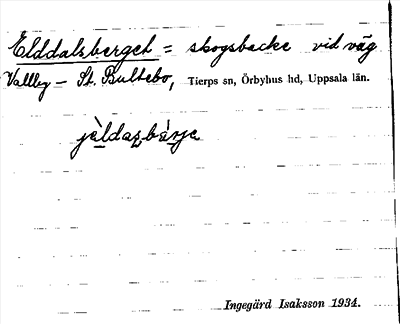 Elddalsberget = skogsbacke vid väg
Vallby - St. Bultebo, Tierps sn, Örbyhus hd, Uppsala län.
jèldasbárje
Ingegärd Isaksson 1934.